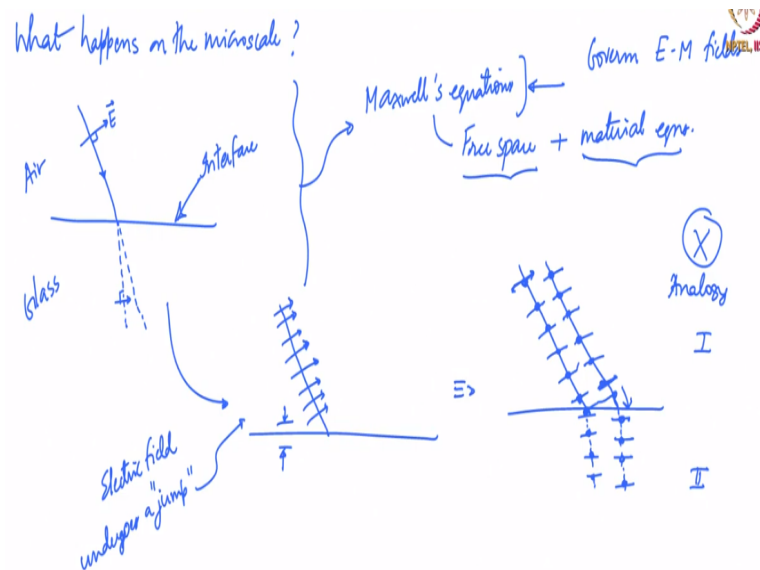 What happens on the microscale?
Govern E-M fields
NPTEL,
Maxwell's equations
Free space + material eqns.
E
Air
Interface
Glass
E
X
Analogy
I
≡>
Electric field
undergoes a "jump"
II